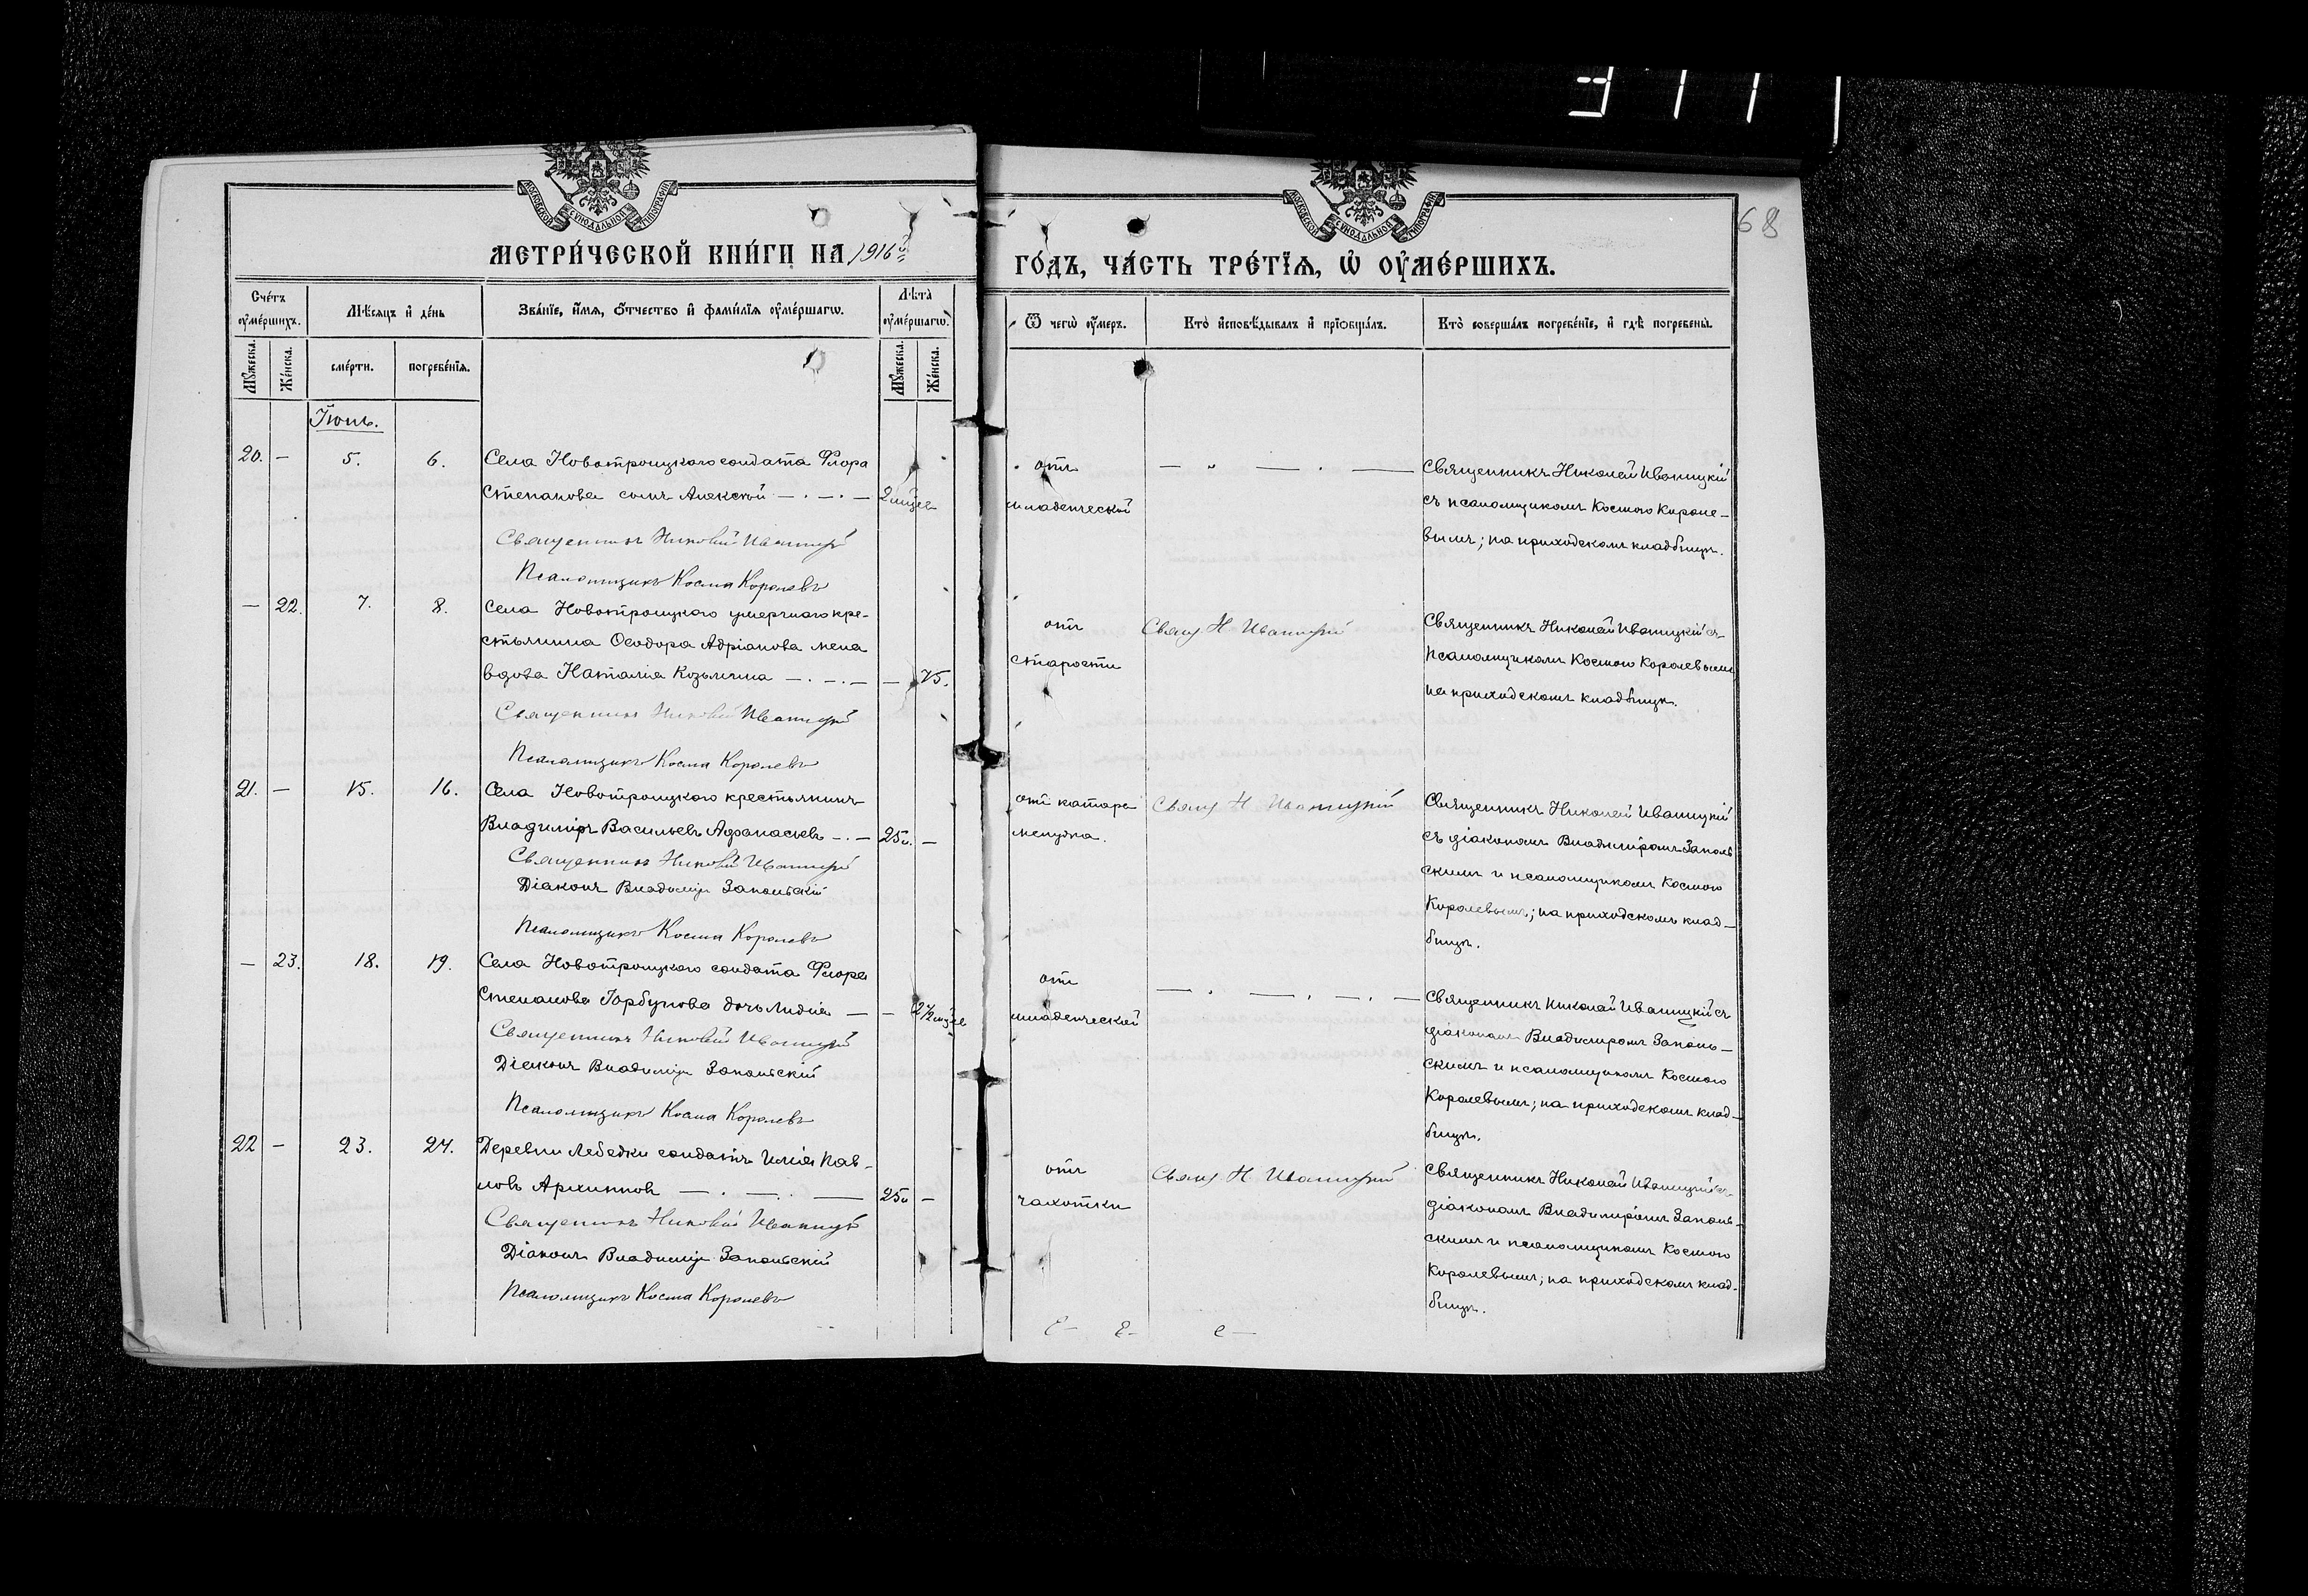 68
МЕТРИЧЕСКОЙ КНИГИ НА 1916й
ГОДЪ, ЧАСТЬ ТРЕТІЯ, Ѡ ОУМЕРШИХЪ.
Счетъ оумершихъ.
Мѣсяцъ и день
Званіе, имя, отчество и фамилія оумершагѡ.
Лѣта оумершагѡ.
Ѿ чегѡ оумеръ.
Кто исповѣдывалъ и пріобщалъ.
Кто совершалъ погребеніе, и гдѣ погребены.
Мужеска.
Женска.
смерти.
погребенія.
Мужеска.
Женска.
Іюнь.
20. — 5. 6.
Села Новотроицкаго солдата Флора
Степанова сынъ Алексѣй — . — . — 2 мѣсе
Священникъ Николай Иваницкій
Псаломщикъ Косма Королевъ
отъ
младенческой
Священникъ Николай Иваницкій
съ псаломщикомъ Космою Короле-
вымъ; на приходскомъ кладбищѣ.
— 22. 7. 8.
Села Новотроицкаго умершаго кре-
стьянина Ѳеодора Адріанова жена
вдова Наталія Козьмина — . — . — — 75.
Священникъ Николай Иваницкій
Псаломщикъ Косма Королевъ
отъ
старости
Свящ Н. Иваницкій
Священникъ Николай Иваницкій съ
псаломщикомъ Космою Королевымъ
на приходскомъ кладбищѣ.
21. — 15. 16.
Села Новотроицкаго крестьянинъ
Владиміръ Васильевъ Афанасьевъ — . — 25 л. —
Священникъ Николай Иваницкій
Діаконъ Владиміръ Запольскій
Псаломщикъ Косма Королевъ
отъ катара
желудка.
Свящ Н. Иваницкій
Священникъ Николай Иваницкій
съ діакономъ Владиміромъ Заполь
скимъ и псаломщикомъ Космою
Королевымъ; на приходскомъ клад-
бищѣ.
— 23. 18. 19.
Села Новотроицкаго солдата Флора
Степанова Горбунова дочь Лидія — — 2 1/2 мѣсе
Священникъ Николай Иваницкій
Діаконъ Владиміръ Запольскій
Псаломщикъ Косма Королевъ
отъ
младенческой
Священникъ Николай Иваницкій съ
діакономъ Владиміромъ Заполь-
скимъ и псаломщикомъ Космою
Королевымъ; на приходскомъ клад-
бищѣ.
22 — 23. 24.
Деревни Лебедки солдатъ Илія Пав-
ловъ Архиповъ — . — . . — 25 л —
Священникъ Николай Иваницкій
Діаконъ Владиміръ Запольскій
Псаломщикъ Косма Королевъ
отъ
чахотки
Свящ Н. Иваницкій
Священникъ Николай Иваницкій съ
діакономъ Владиміромъ Заполь-
скимъ и псаломщикомъ Космою
Королевымъ; на приходскомъ клад-
бищѣ.